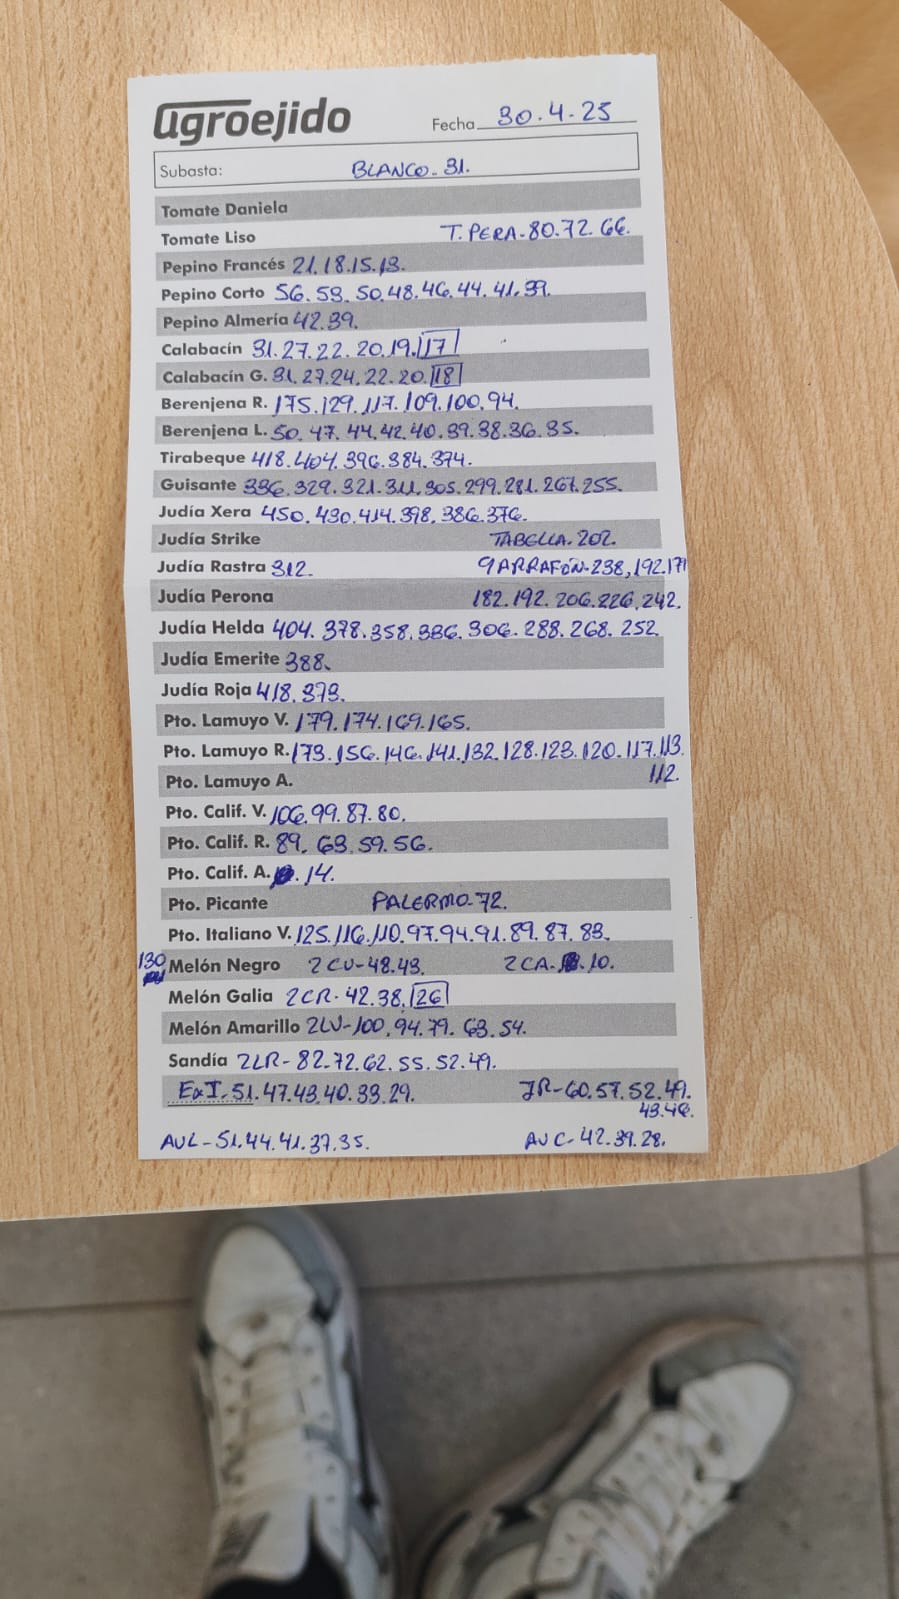 agroejido
Fecha 30.4-25
Subasta: BLANCO-31.
Tomate Daniela
Tomate Liso T.PERA-80.72.66.
Pepino Francés 21.18.15.13.
Pepino Corto 56.53.50.48.46.44.41.39.
Pepino Almería 42.39.
Calabacín 31.27.22.20.19.17
Calabacín G. 31.27.24.22.20.18
Berenjena R. 175.129.117.109.100.94.
Berenjena L. 50.47.44.42.40.39.38.36.35.
Tirabeque 418.404.396.384.374.
Guisante 336.329.321.311.305.299.281.267.255.
Judía Xera 450.430.414.398.386.376.
Judía Strike TABELLA.202.
Judía Rastra 312. GARRAFÓN-238,192.171
Judía Perona 182.192.206.226.242.
Judía Helda 404.378.358.336.306.288.268.252.
Judía Emerite 388.
Judía Roja 418.373.
Pto. Lamuyo V. 179.174.169.165.
Pto. Lamuyo R. 173.156.146.141.132.128.123.120.117.113.
112.
Pto. Lamuyo A.
Pto. Calif. V. 106.99.87.80.
Pto. Calif. R. 89.63.59.56.
Pto. Calif. A. 14.
Pto. Picante PALERMO-72.
Pto. Italiano V. 125.116.110.97.94.91.89.87.83.
130 Melón Negro 2CU-48.43. 2CA- 10.
Melón Galia 2CR-42.38.26
Melón Amarillo 2LV-100.94.79.63.54.
Sandía 2LR-82.72.62.55.52.49.
ExI-51.47.43.40.33.29. JR-60.57.52.49.
43.46.
AUL-51.44.41.37.35. AUC-42.39.28.